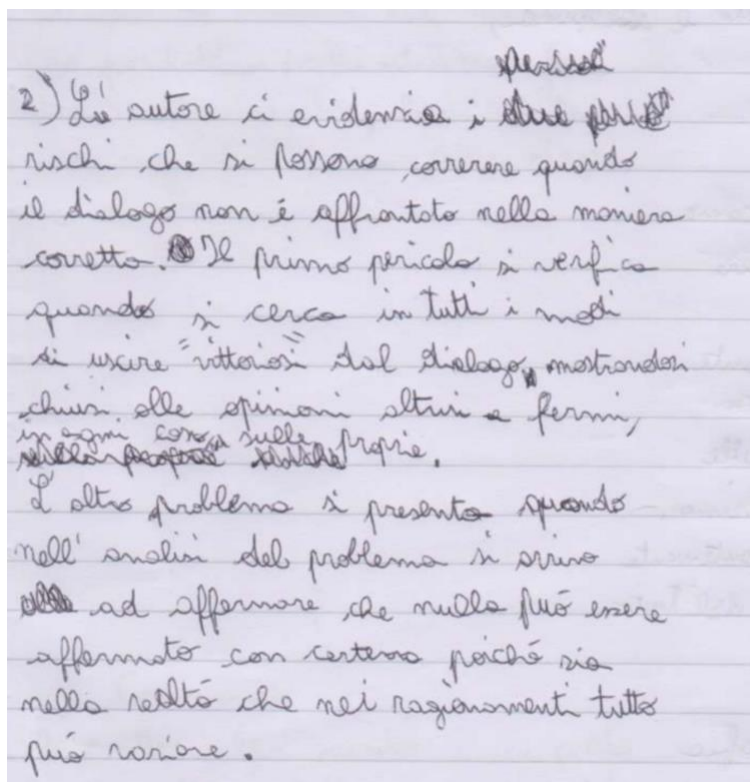 2) L'autore ci evidenzia i
rischi che si possono correrere quando
il dialogo non é affrontato nella maniera
corretta. Il primo pericolo si verifica
quando si cerca in tutti i modi
di uscire "vittoriosi" dal dialogo, mostrandosi
chiusi alle opinioni altrui e fermi,
in ogni caso, sulle proprie.
L'altro problema si presenta quando
nell'analisi del problema si arriva
ad affermare che nulla può essere
affermato con certezza poiché sia
nella realtà che nei ragionamenti tutto
può variare.